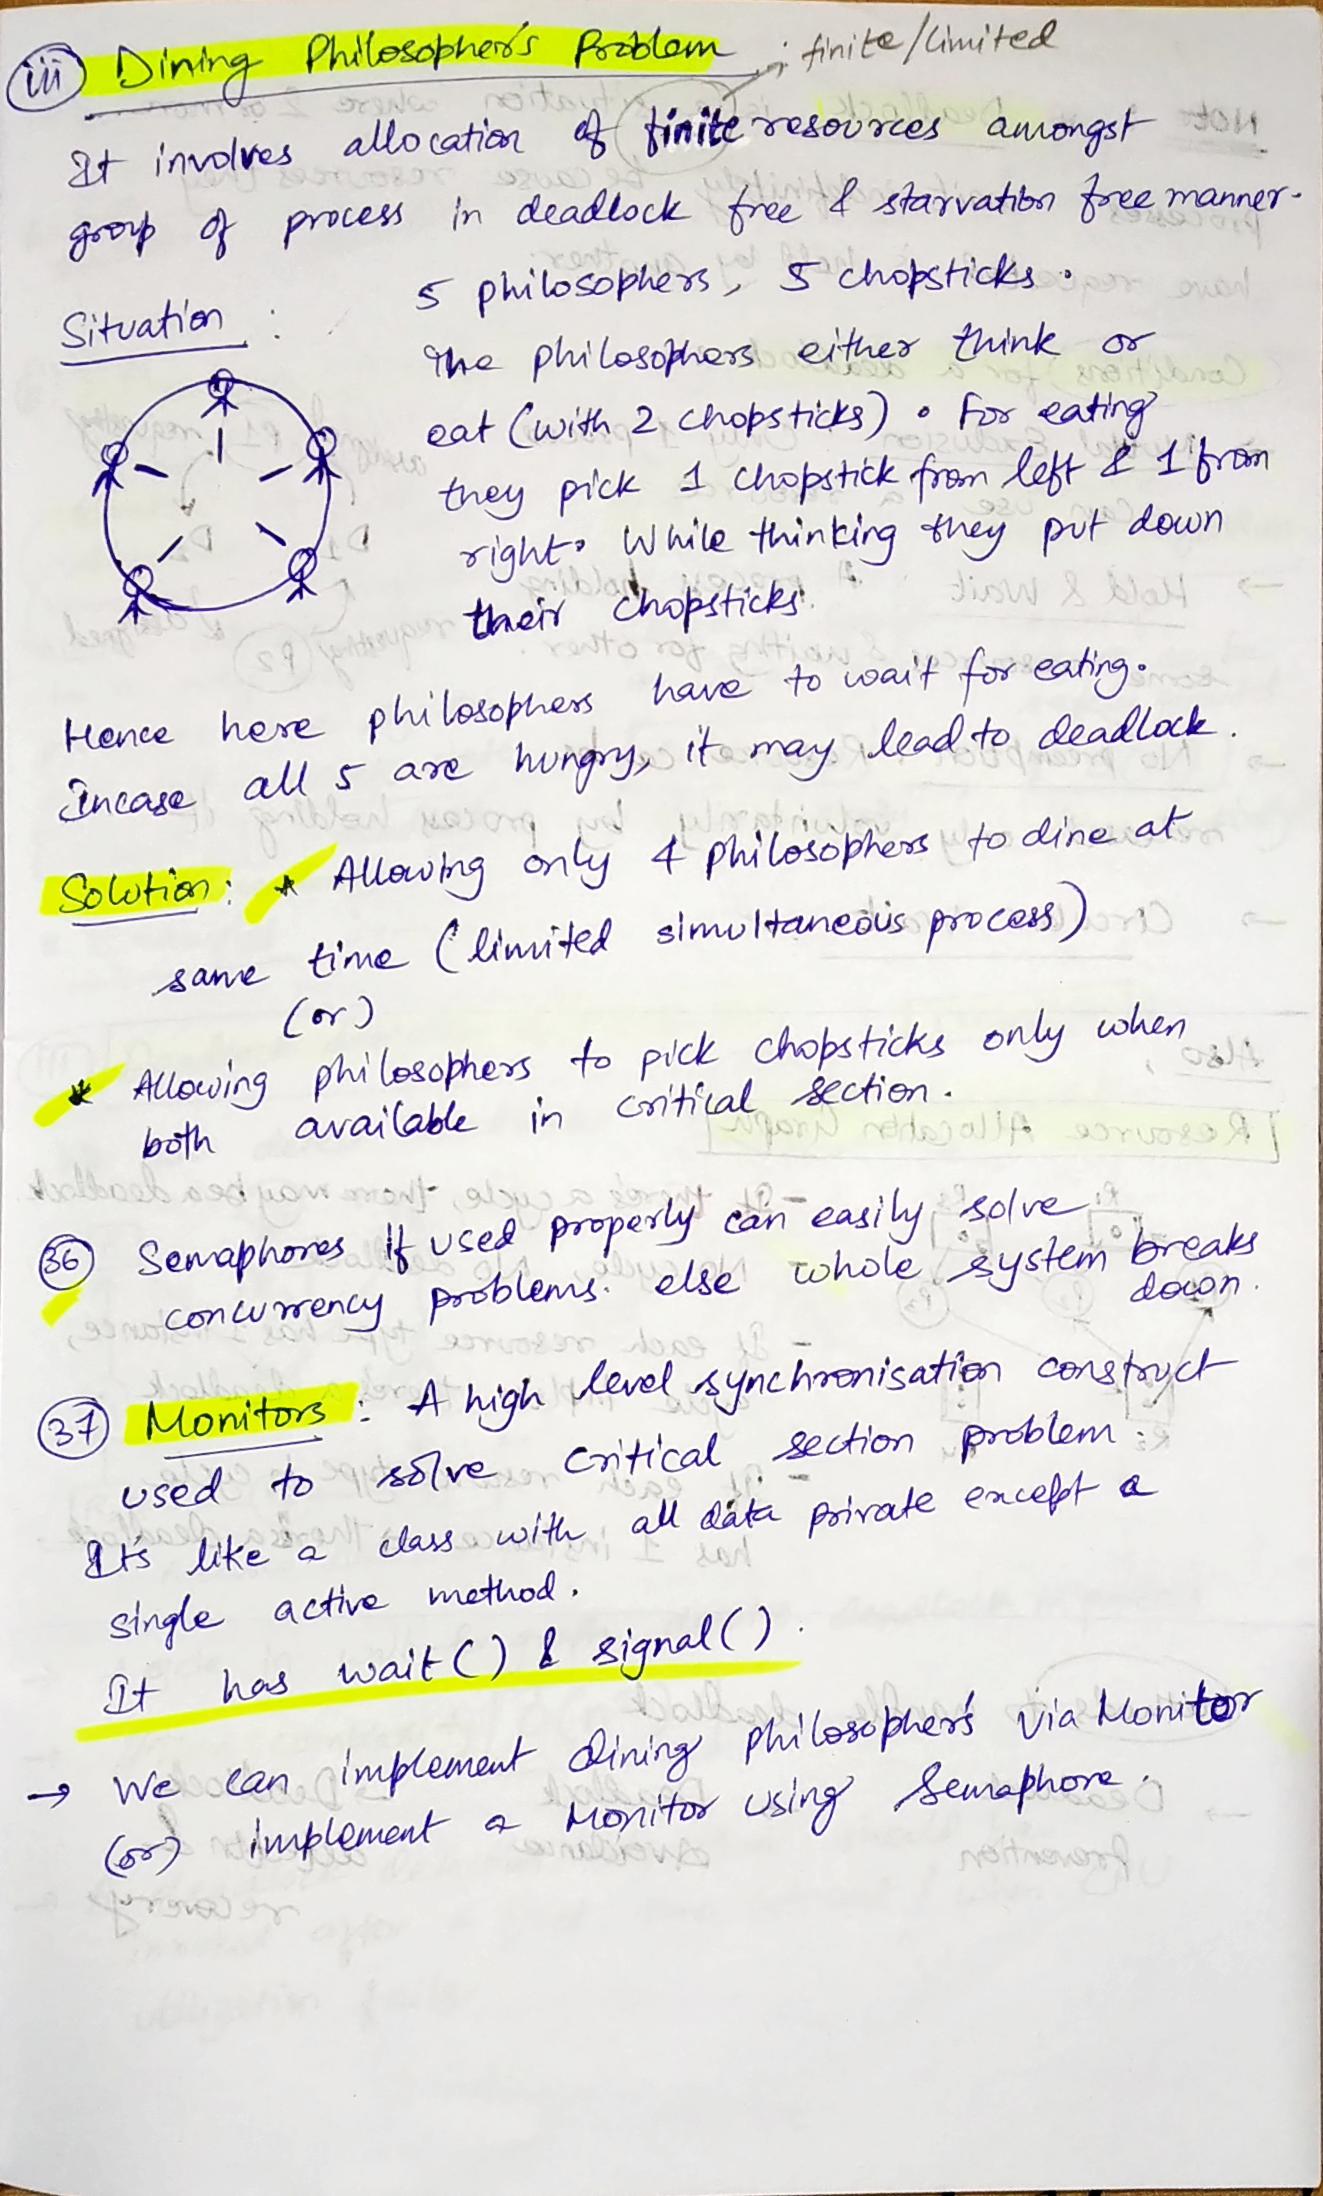 (iii) Dining Philosopher's Problem ; finite/limited
It involves allocation of finite resources amongst
group of process in deadlock free & starvation free manner.
Situation : 5 philosophers, 5 chopsticks.
The philosophers either think or
eat (with 2 chopsticks). For eating
they pick 1 chopstick from left & 1 from
right. While thinking they put down
their chopsticks.
Hence here philosophers have to wait for eating.
Incase all 5 are hungry, it may lead to deadlock.
Solution: * Allowing only 4 philosophers to dine at
same time (limited simultaneous process)
(or)
* Allowing philosophers to pick chopsticks only when
both available in critical section.
(36) Semaphores if used properly can easily solve
concurrency problems. else whole system breaks
down.
(37) Monitors : A high level synchronisation construct
used to solve critical section problem.
It's like a class with all data private except a
single active method.
It has wait() & signal().
→ We can implement dining philosopher's via Monitor
(or) implement a Monitor using Semaphore.